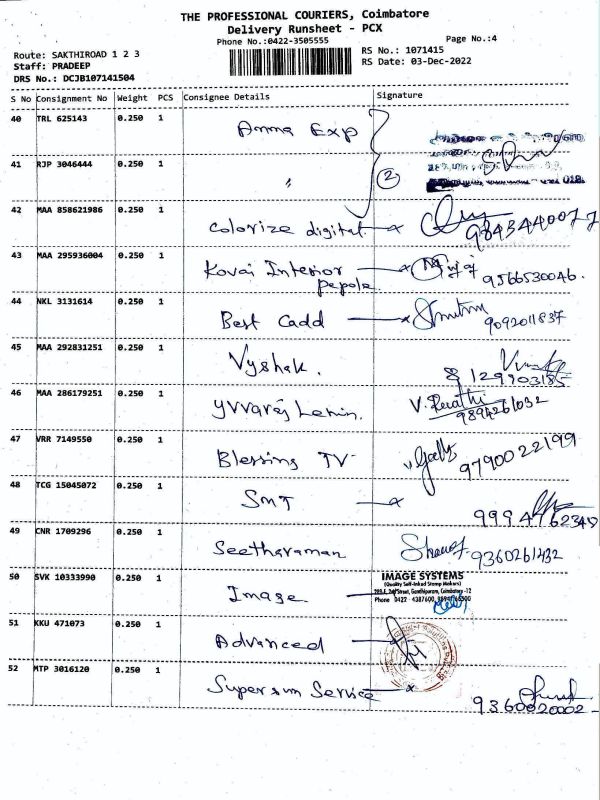 THE PROFESSIONAL COURIERS, Coimbatore
Delivery Runsheet - PCX
Phone No.:0422-3505555
Page No.:4
Route: SAKTHIROAD 1 2 3
Staff: PRADEEP
DRS No.: DCJB107141504
RS No.: 1071415
RS Date: 03-Dec-2022
S No Consignment No Weight PCS Consignee Details Signature
40 TRL 625143 0.250 1 Amma Exp
41 RJP 3046444 0.250 1 〃 2
42 MAA 858621986 0.250 1 Colorize digital 9843440077
43 MAA 295936004 0.250 1 Kovai Interior 9566530046.
pepole
44 NKL 3131614 0.250 1 Best Cadd 9092011837
45 MAA 292831251 0.250 1 Vyshak. 8129903185
46 MAA 286179251 0.250 1 yvvaraj Lenin. 9894261032
47 VRR 7149550 0.250 1 Blessing TV 9790022199
48 TCG 15045072 0.250 1 SMT
49 CNR 1709296 0.250 1 Seetharaman 9360261432
50 SVK 10333990 0.250 1 Image IMAGE SYSTEMS
(Quality Self-Inked Stamp Makers)
Street, Gandhipuram, Coimbatore -12
Phone 0422 - 4387600,
51 KKU 471073 0.250 1 Advanced
52 MTP 3016120 0.250 1 Supersun Service 9360020002